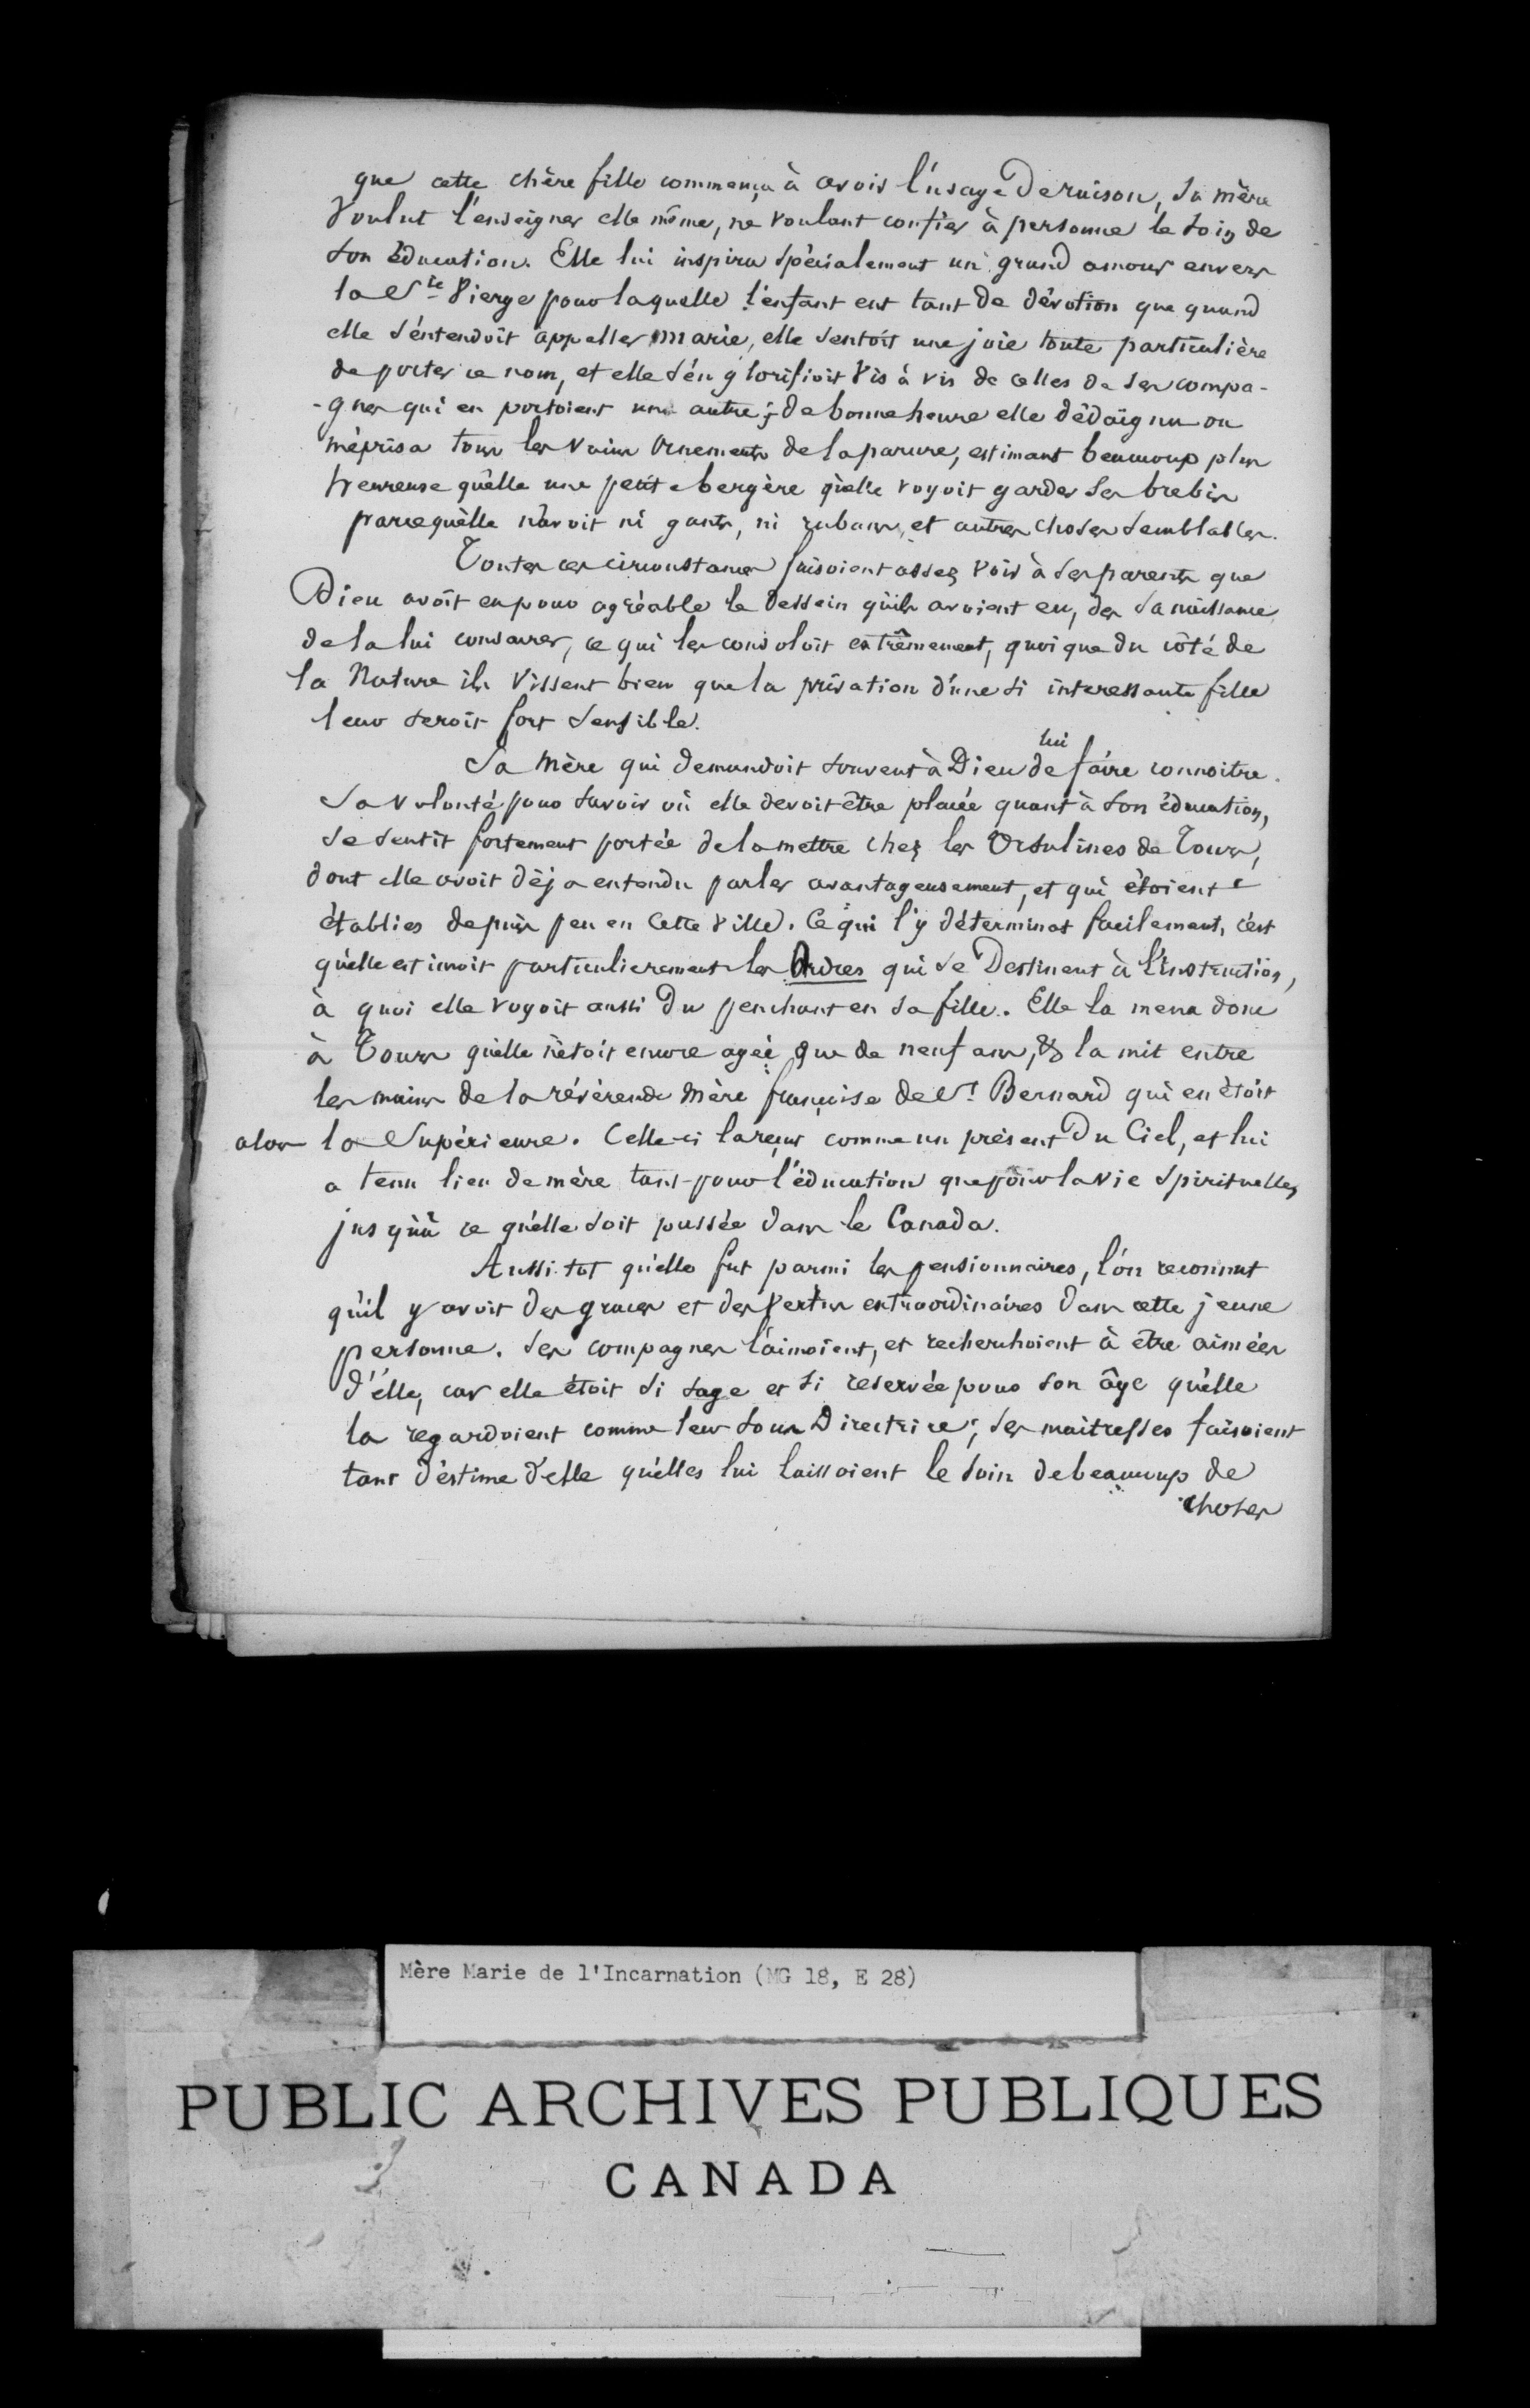 que cette chère fille commença à avoir l'usage de raison, sa mère
voulut l'enseigner elle même, ne voulant confier à personne le soin de
son éducation. Elle lui inspira spécialement un grand amour envers
la Ste Vierge pour laquelle l'enfant eut tant de dévotion que quand
elle s'entendoit appeller Marie, elle sentoit une joie toute particulière
de porter ce nom, et elle s'en glorifioit vis à vis de celles de ses compa-
-gnes qui en portoient un autre; de bonne heure elle dédaigna ou
méprisa tous les vains ornements de la parure, estimant beaucoup plus
heureuse qu'elle une petite bergère qu'elle voyoit garder ses brebis
parcequ'elle n'avoit ni gants, ni rubans, et autres choses semblables.
Toutes ces circonstances faisoient assez voir à ses parents que
Dieu avoit eu pour agréable le dessein qu'ils avoient eu, dès sa naissance
de la lui consacrer, ce qui les consoloit extrêmement, quoique du côté de
la Nature ils vissent bien que la privation d'une si interessante fille
leur seroit fort sensible.
lui
Sa Mère qui demandoit souvent à Dieu de faire connoitre
sa volonté pour savoir où elle devoit être placée quant à son éducation,
se sentit fortement portée de la mettre chez les Ursulines de Tours,
dont elle avoit déja entendu parler avantageusement, et qui étoient
établies depuis peu en cette ville. Ce qui l'y déterminat facilement, c'est
qu'elle estimoit particulierement les Ordres qui se Destinent à l'instruction,
à quoi elle voyoit aussi du penchant en sa fille. Elle la mena donc
à Tours qu'elle n'étoit encore agée que de neuf ans, & la mit entre
les mains de la révérende Mère françoise de St Bernard qui en étoit
alors la Supérieure. Celle-ci la reçut comme un présent du Ciel, et lui
a tenu lieu de mère tant pour l'éducation que pour la vie spirituelle,
jusqu'à ce qu'elle soit passée dans le Canada.
Aussi-tot qu'elle fut parmi les pensionnaires, l'on reconnut
qu'il y avoit des graces et des vertus extraordinaires dans cette jeune
personne. Ses compagnes l'aimoient, et recherchoient à être aimées
d'elle, car elle étoit si sage et si reservée pour son âge qu'elle
la regardoient comme leur sous Directrice; ses maitresses faisoient
tant d'estime d'elle qu'elles lui laissoient le soin de beaucoup de
choses
Mère Marie de l'Incarnation (MG 18, E 28)
PUBLIC ARCHIVES PUBLIQUES
CANADA